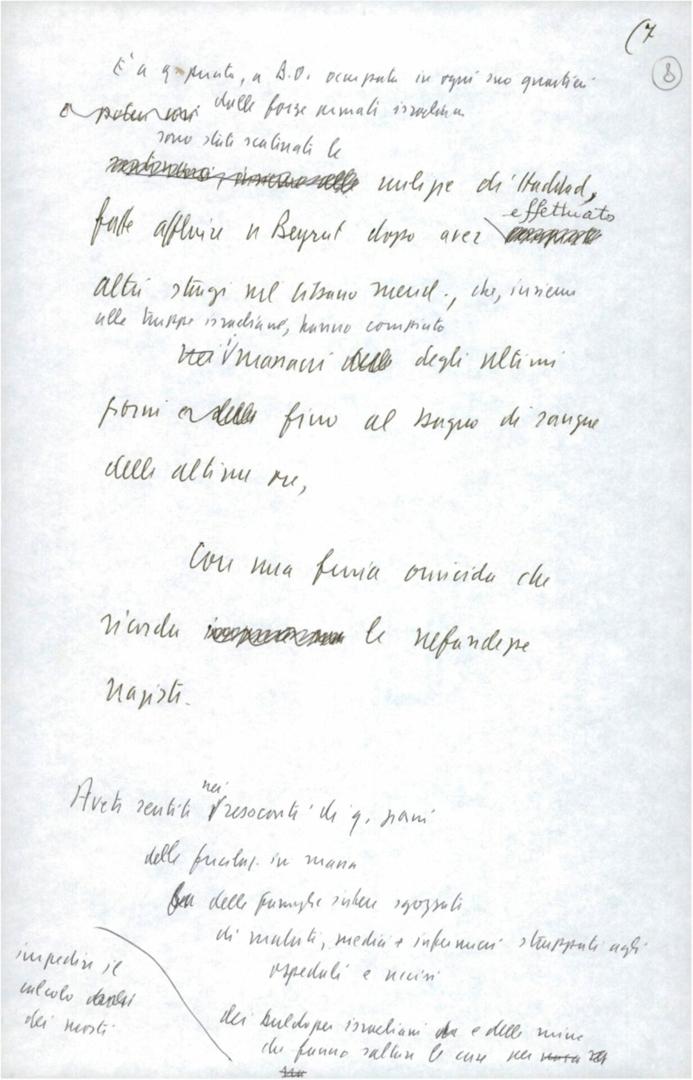 (7
8
È a q. punto, a B.O. occupata in ogni suo quartiere
dalle forze armate israeliane
sono state scatenate le
milizie di Haddad,
fatte affluire a Beyrut dopo aver effettuato
altri stragi nel Libano merid., che, insieme
alle truppe israeliane, hanno compiuto
i massacri degli ultimi
giorni e fino al bagno di sangue
delle ultime ore,
Con una furia omicida che
ricorda le nefandezze
naziste.
Avete sentiti nei resoconti di q. giorni
delle fucilaz. in massa
delle famiglie intere sgozzate
di malati, medici e infermieri strappati agli
ospedali e uccisi
dei buldozer israeliani e delle mine
che fanno saltare le case per
impedire il
calcolo
dei morti